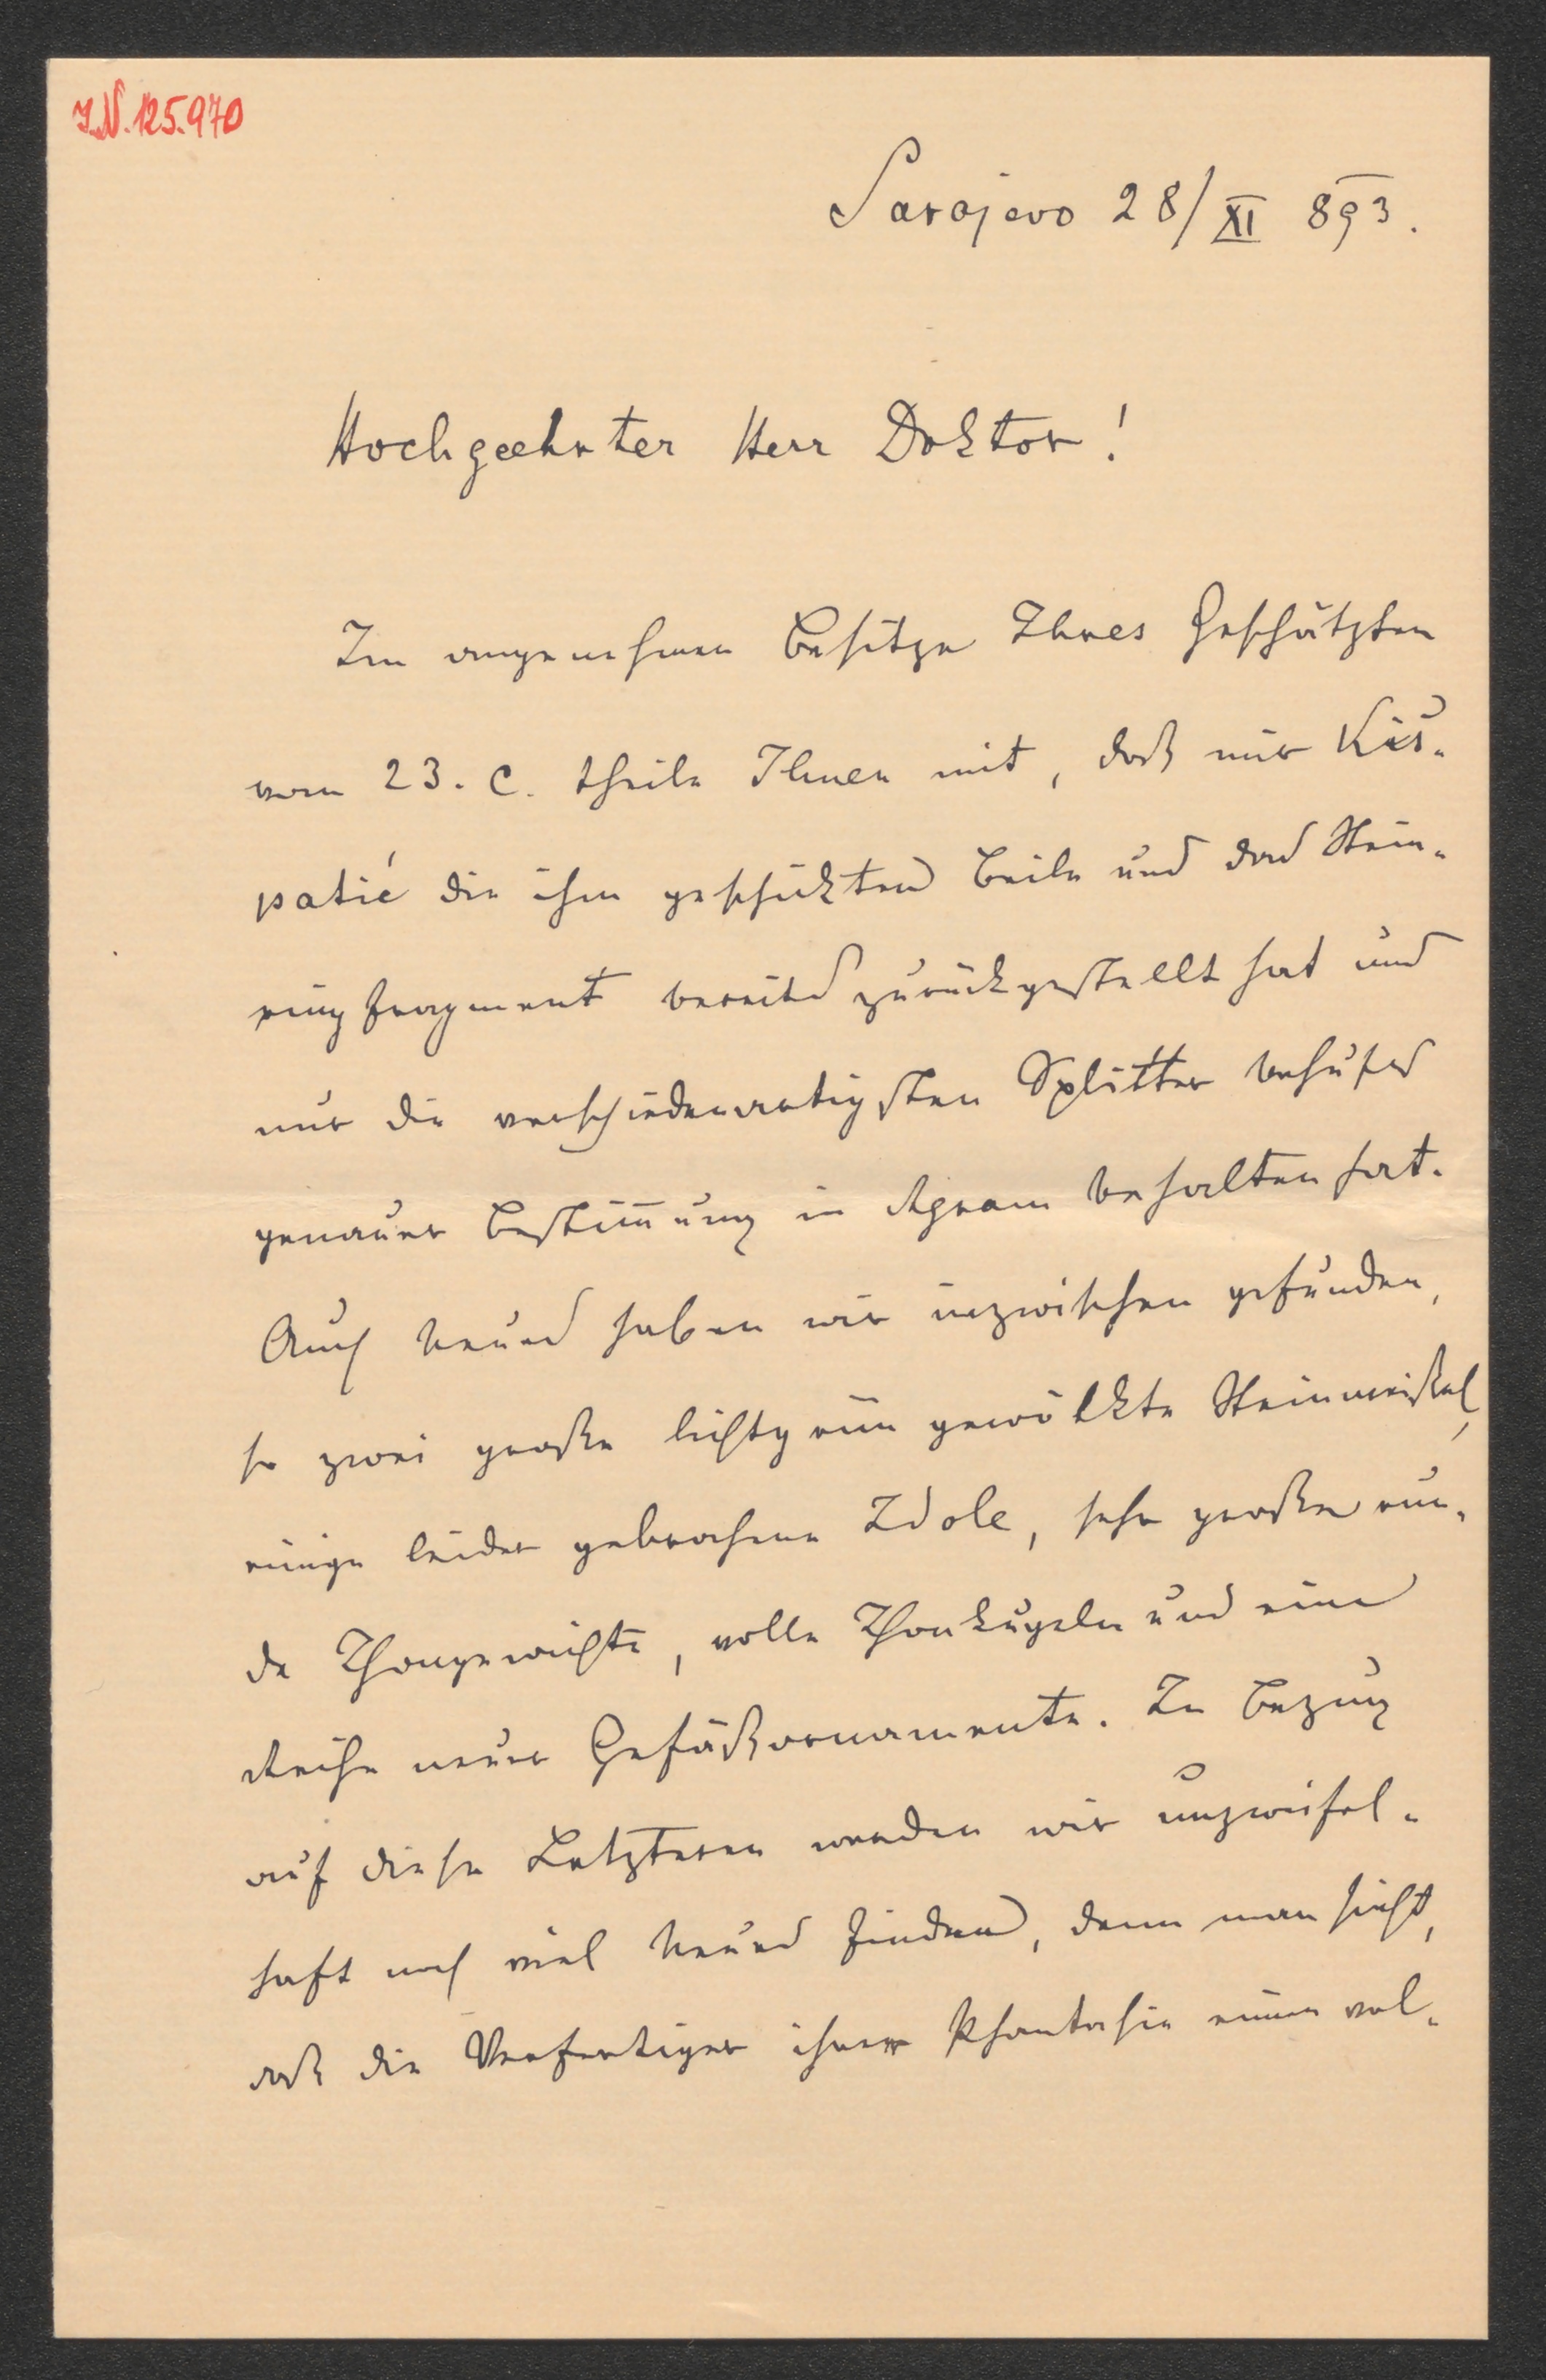 I.N. 125.970
Sarajevo 28/XI 893.
Hochgeehrter Herr Doktor!
Im angenehmen Besitze Ihres Geschätzten
vom 23. c. theile Ihnen mit, daß mir Kiš-
patić die ihm geschickten Beile und das Stein-
ringfragment bereits zurückgestellt hat und
nur die verschiedenartigsten Splitter behufs
genauer Bestim̅ung in Agram behalten hat.
Auch Neues haben wir inzwischen gefunden,
so zwei große lichtgrün gewölkte Steinmeißel,
einige leider gebrochene Idole, sehr große run-
de Thongewichte, volle Thonkugeln und eine
Reihe neuer Gefäßornamente. In Bezug
auf diese Letzteren werden wir unzweifel-
haft noch viel Neues finden, denn man sieht,
daß die Verfertiger ihrer Phantasie einen vol-